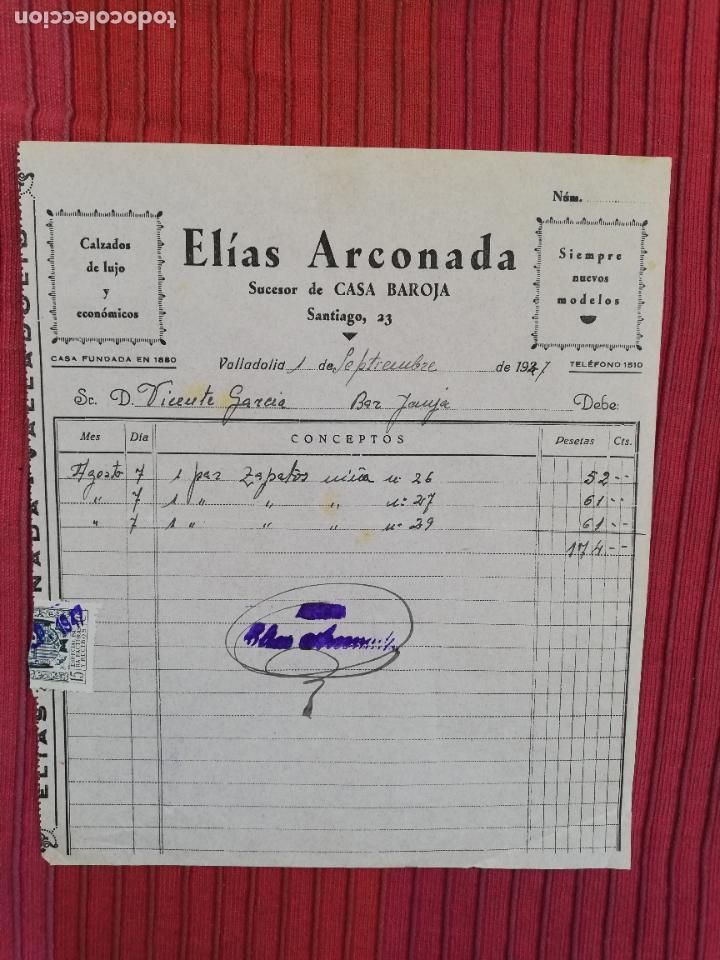 todocoleccion
Núm.
Calzados
de lujo
y
económicos
CASA FUNDADA EN 1880
Elías Arconada
Sucesor de CASA BAROJA
Santiago, 23
Siempre
nuevos
modelos
TELÉFONO 1510
Valladolid 1 de Septiembre de 1947
Sr. D. Vicente Garcia Bar Debe:
Mes Día CONCEPTOS Pesetas Cts.
Agosto 7 1 par Zapatos niña nº 26 52 --
" 7 1 " " " nº 27 61 --
" 7 1 " " " nº 29 61 --
174 --
1947
ESPECIAL PARA
FACTURAS
Y RECIBOS
15
ELIAS
NADA
VALLADOLID